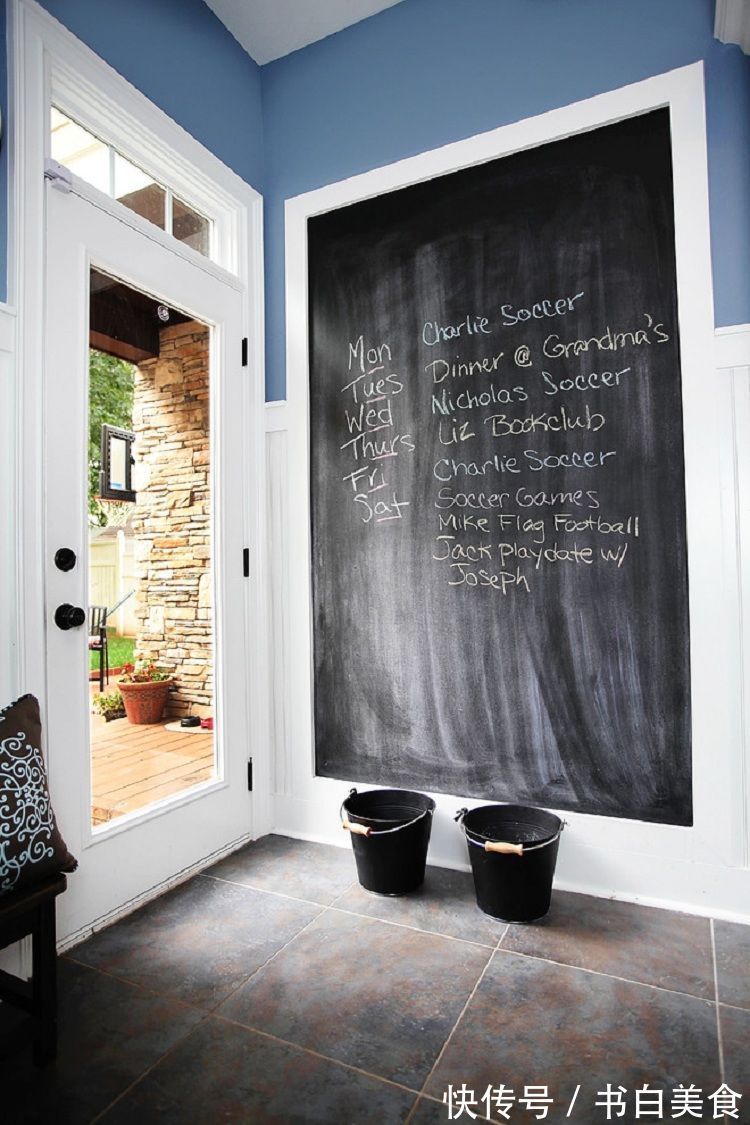 Mon Charlie Soccer
Tues Dinner @ Grandma's
Wed Nicholas Soccer
Thurs Liz Bookclub
Fri Charlie Soccer
Sat Soccer Games
Mike Flag Football
Jack playdate w/
Joseph
快传号 / 书白美食